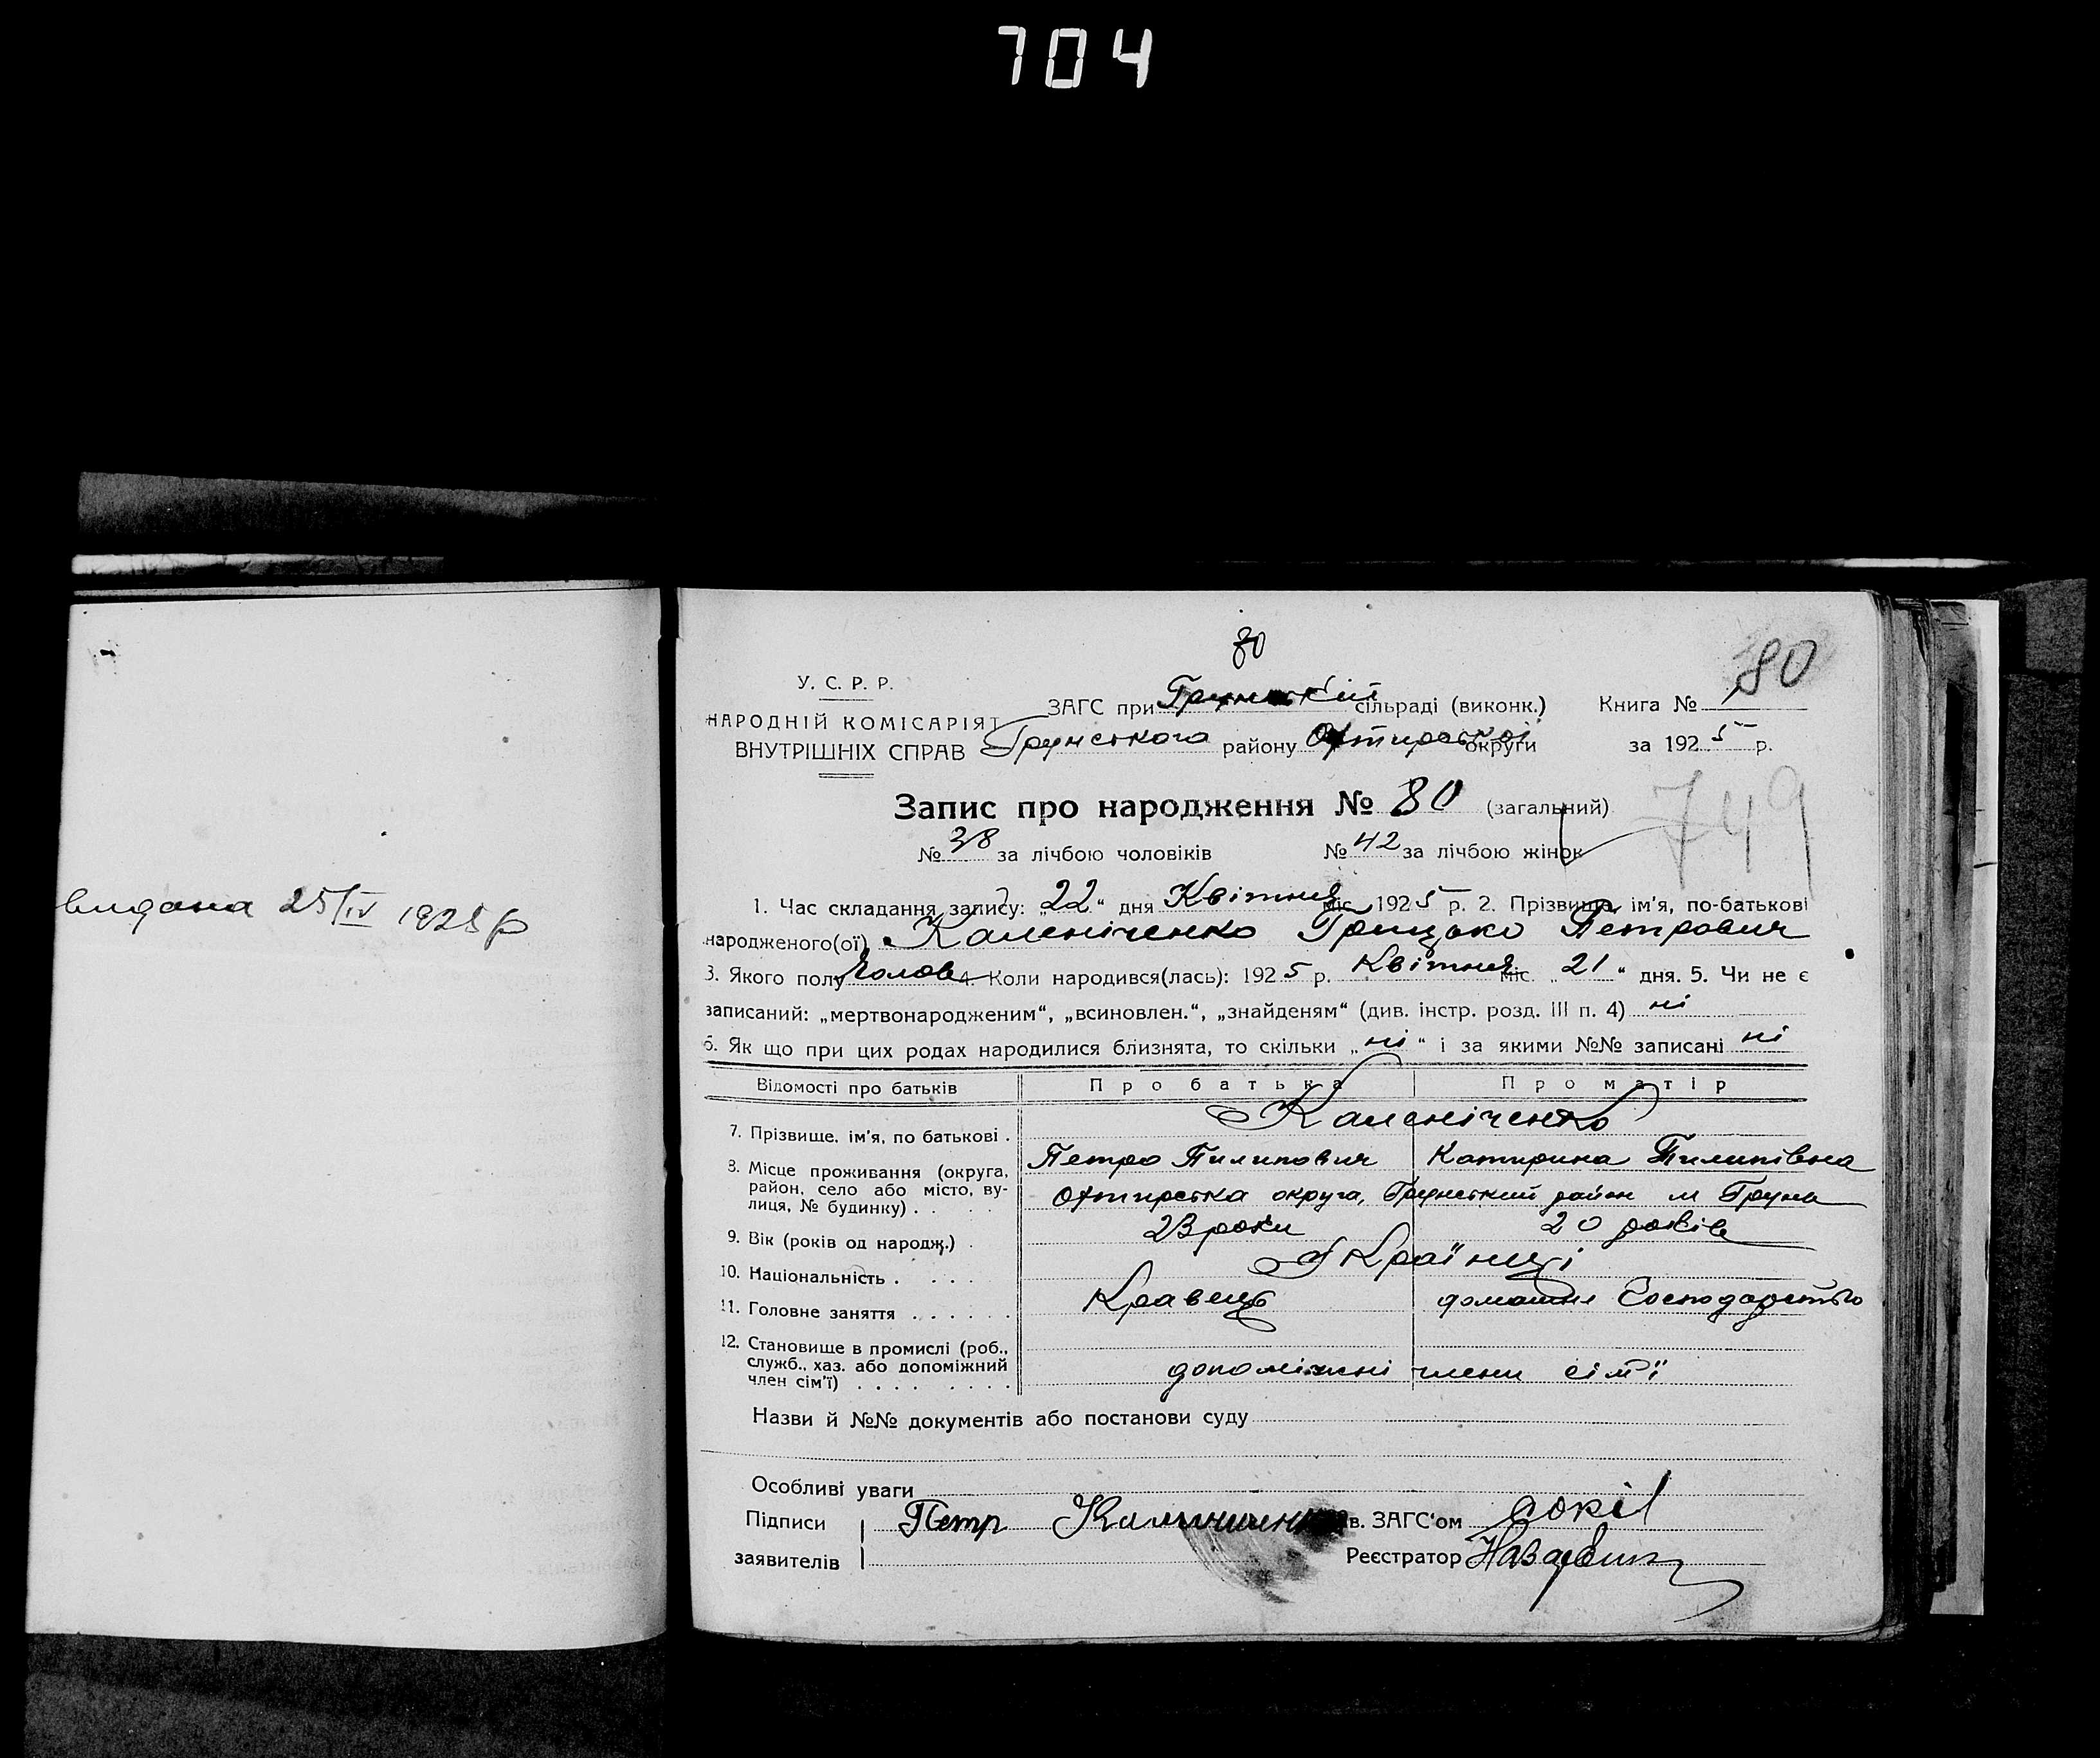 704
80
80
У. С. Р. Р.
ЗАГС при Грунській сільраді (виконк.) Книга №
НАРОДНІЙ КОМІСАРІЯТ
ВНУТРІШНІХ СПРАВ Грунського району Охтирської округи за 1925 р.
Запис про народження № 80 (загальний)
749
№ 38 за лічбою чоловіків № 42 за лічбою жінок
видана 25/IV 1925 р
1. Час складання запису: „22“ дня Квітня міс. 1925 р. 2. Прізвище, ім'я, по-батькові
народженого(ої) Каленіченко Грицько Петрович
3. Якого полу Чолов 4. Коли народився(лась): 1925 р. Квітня міс. „21“ дня. 5. Чи не є
записаний: „мертвонародженим“, „всиновлен.“, „знайденям“ (див. інстр. розд. III п. 4) ні
6. Як що при цих родах народилися близнята, то скільки „ні“ і за якими №№ записані ні
Відомості про батьків Про батька Про матір
Каленіченко
7. Прізвище, ім'я, по батькові .
Петро Пилипович Катирина Пилипівна
8. Місце проживання (округа, район, село або місто, вулиця, № будинку) . . . .
Охтирська округа, Грунський район м Груна
9. Вік (років од народж.) . 23 роки 20 років
10. Національність . . . . Українці
11. Головне заняття . . . . . . Кравець домашнє Господарство
12. Становище в промислі (роб.,
служб., хаз. або допоміжний
член сім'ї) . . . . . . . . допоміжні члени сім'ї
Назви й №№ документів або постанови суду
Особливі уваги
Підписи Петр Калиниченко Зв. ЗАГС'ом
заявителів Реєстратор